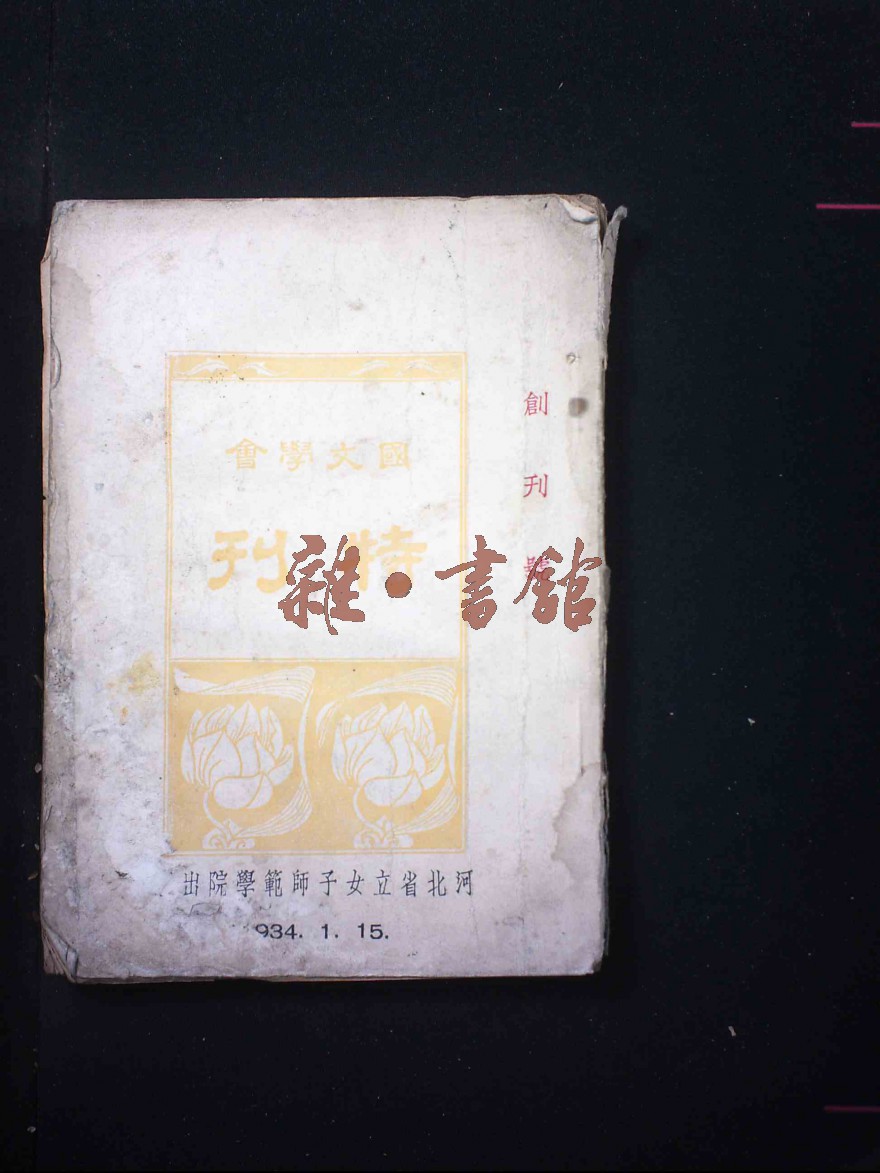 創刊號
國文學會
特刊
雜·書館
河北省立女子師範學院出
934. 1. 15.